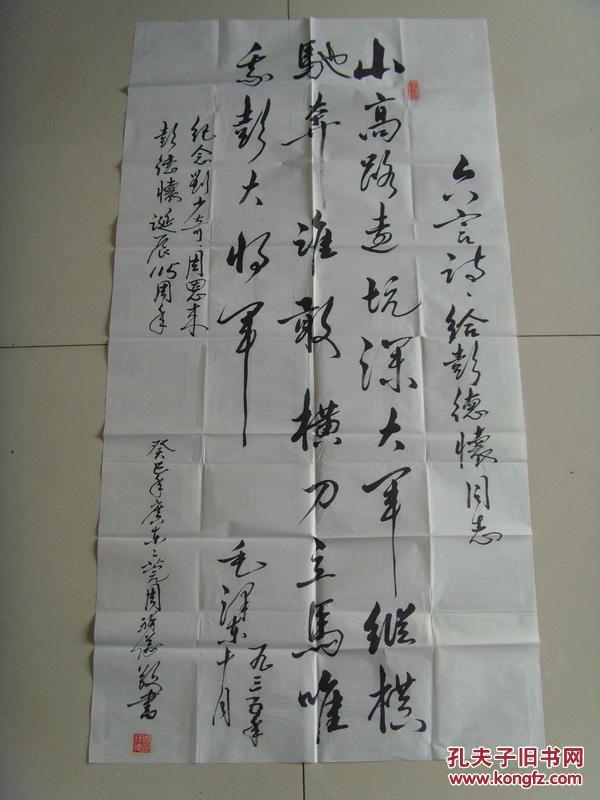 六言诗、给彭德懷同志
山高路遠坑深大军縱横
馳奔誰敢横刀立馬唯
我彭大将军
一九三五年
毛泽东十月
纪念劉少奇、周恩来
彭德懷诞辰115周年
癸巳年广东东莞周敬書
孔夫子旧书网
www.kongfz.com